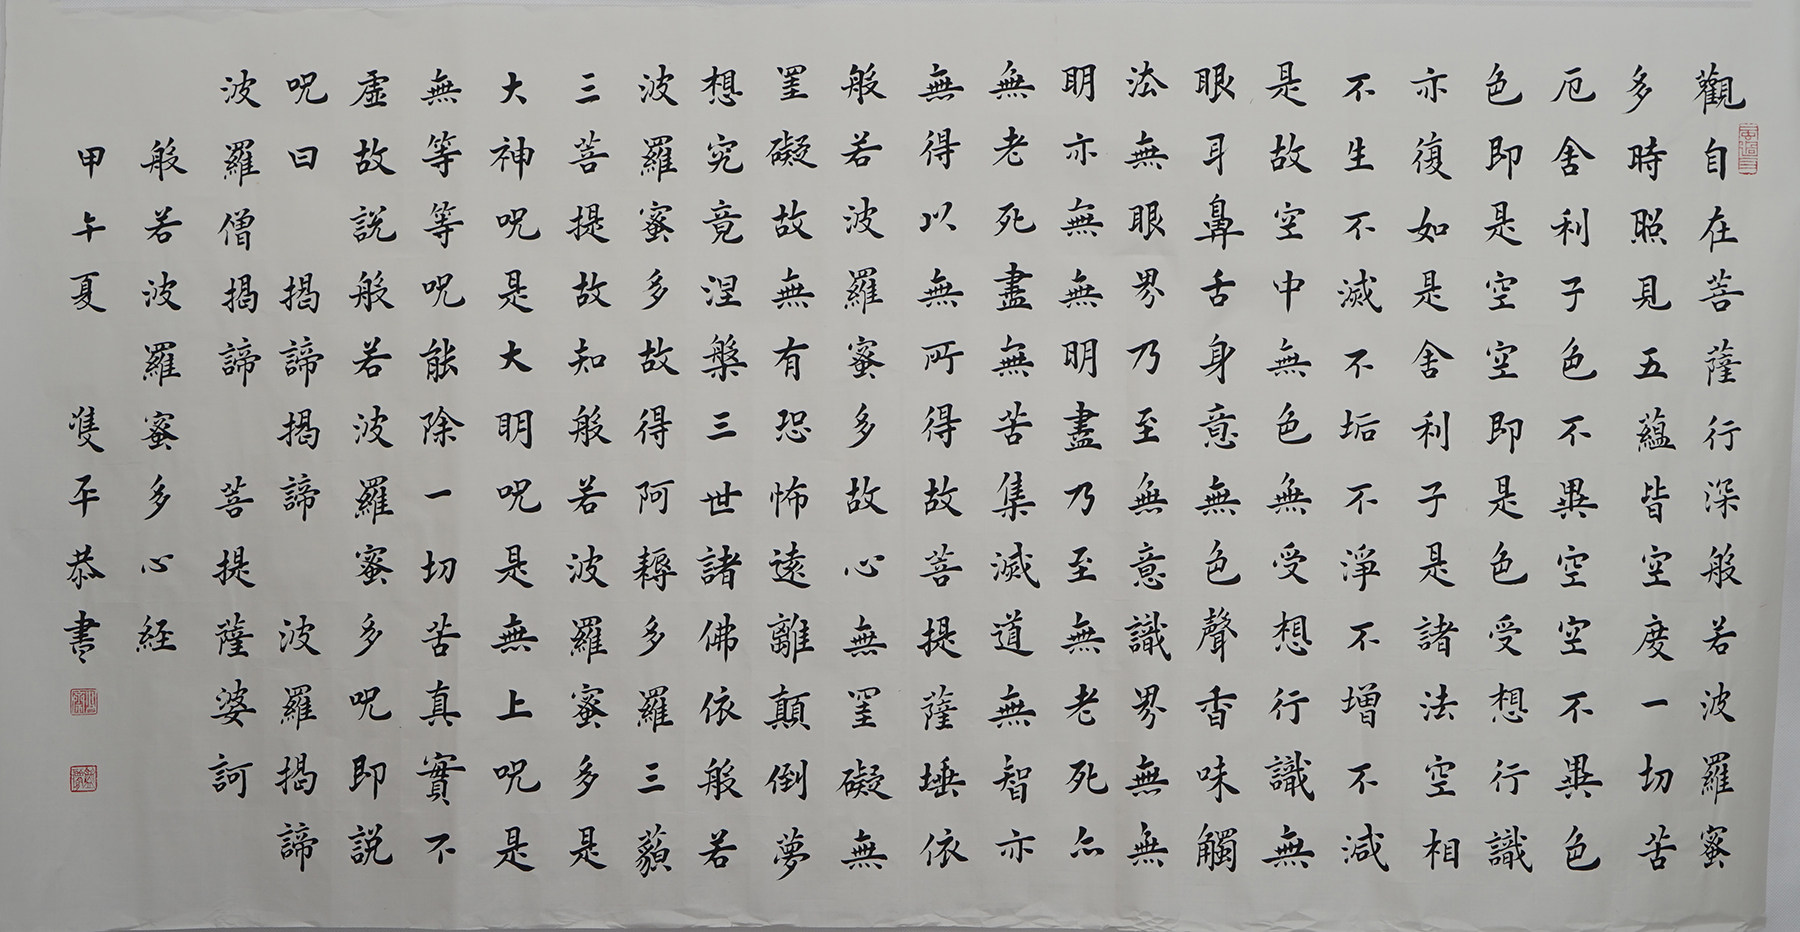 觀自在菩薩行深般若波羅蜜
多時照見五蘊皆空度一切苦
厄舍利子色不異空空不異色
色即是空空即是色受想行識
亦復如是舍利子是諸法空相
不生不滅不垢不淨不增不減
是故空中無色無受想行識無
眼耳鼻舌身意無色聲香味觸
法無眼界乃至無意識界無無
明亦無無明盡乃至無老死亦
無老死盡無苦集滅道無智亦
無得以無所得故菩提薩埵依
般若波羅蜜多故心無罣礙無
罣礙故無有恐怖遠離顛倒夢
想究竟涅槃三世諸佛依般若
波羅蜜多故得阿耨多羅三藐
三菩提故知般若波羅蜜多是
大神咒是大明咒是無上咒是
無等等咒能除一切苦真實不
虛故說般若波羅蜜多咒即說
咒曰 揭諦揭諦 波羅揭諦
波羅僧揭諦 菩提薩婆訶
般若波羅蜜多心経
甲午夏 隻平恭書